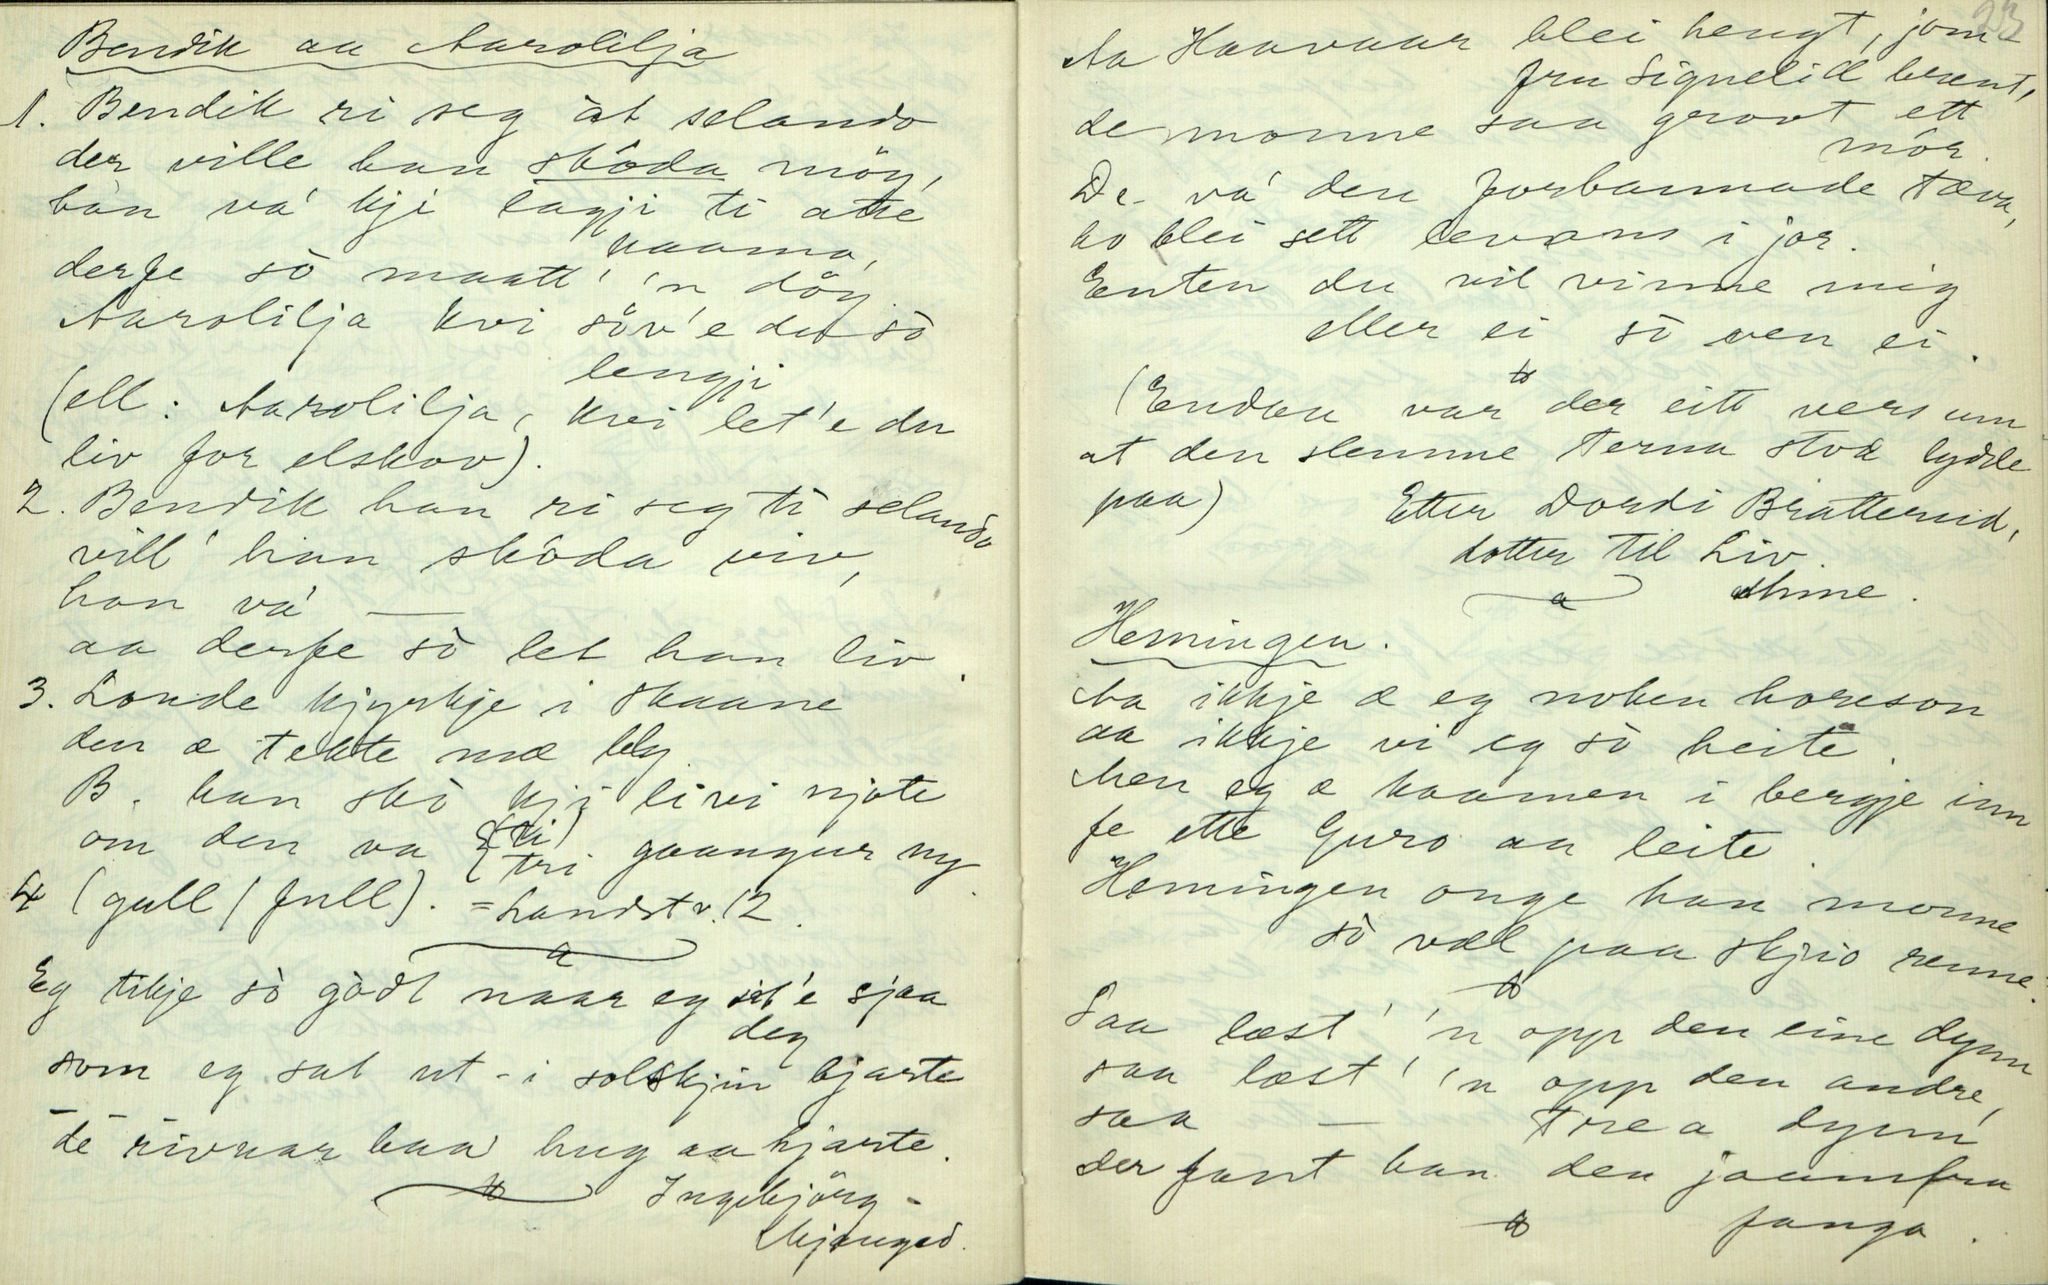 Bendik aa Aarolilja
1. Bendik ri seg åt selando
der ville han skôda möy,
hàn va' kji lagji ti atte
kaama,
derfe sò maatt' 'n döy.
Aarolilja kvi söv'e du sò
lengji
(ell: Aarolilja, kvi let'e du
liv for elskov).
2. Bendik han ri seg ti selando
vill' han skôda viv,
han va' —
aa derfe sò let han liv.
3. Londe kjyrkje i Skaane
den æ tekte mæ bly.
B. han skò kji livi njote
om den va (ti)
tri gaangur ny.
4 (gull / full). = Landst v. 12.
Eg tikje sò gòdt naar eg sit'e sjaa
deg
som eg sat ut-i solskjin bjarte
de rivnar baa hug aa hjarte.
Ingebjörg
23
Aa Haavaar blei hengt, jom-
fru Signelill brent,
de monne saa grovt ett
môr.
De va' den forbannade tæva,
ho blei sett levans i jor.
Enten du vil vinne mig
eller ei sò ven ei.
(Endaa var der eitt vers um
at den slemme terna stod lydde
paa)
Etter Dordi Bratterud,
dotter til Liv
Hemingen.
Aa ikkje æ eg noken horeson
aa ikkje vi eg sò heite.
Men eg æ kaamen i bergje inn
fe ette Guro aa leite.
Hemingen onge han monne
sò væl paa skjio renne.
Saa læst' 'n opp den eine dynn
saa læst' 'n opp den andre,
saa — trea dynn
der fant han den jaamfru
fanga.